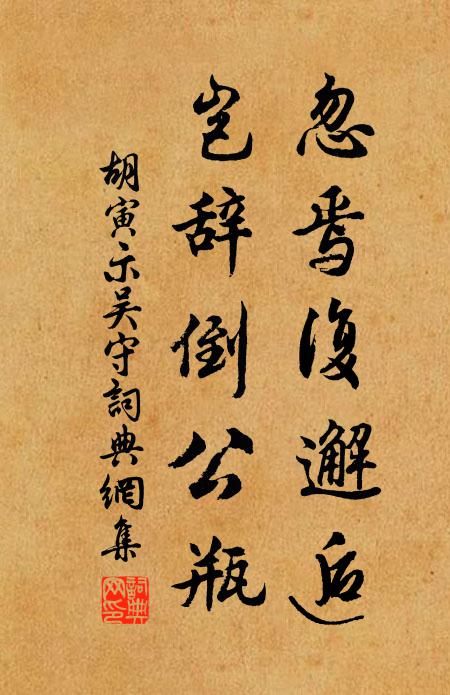 忽焉復邂逅
岂辞倒公瓶
胡寅示吴守詞典網集
詞典網印